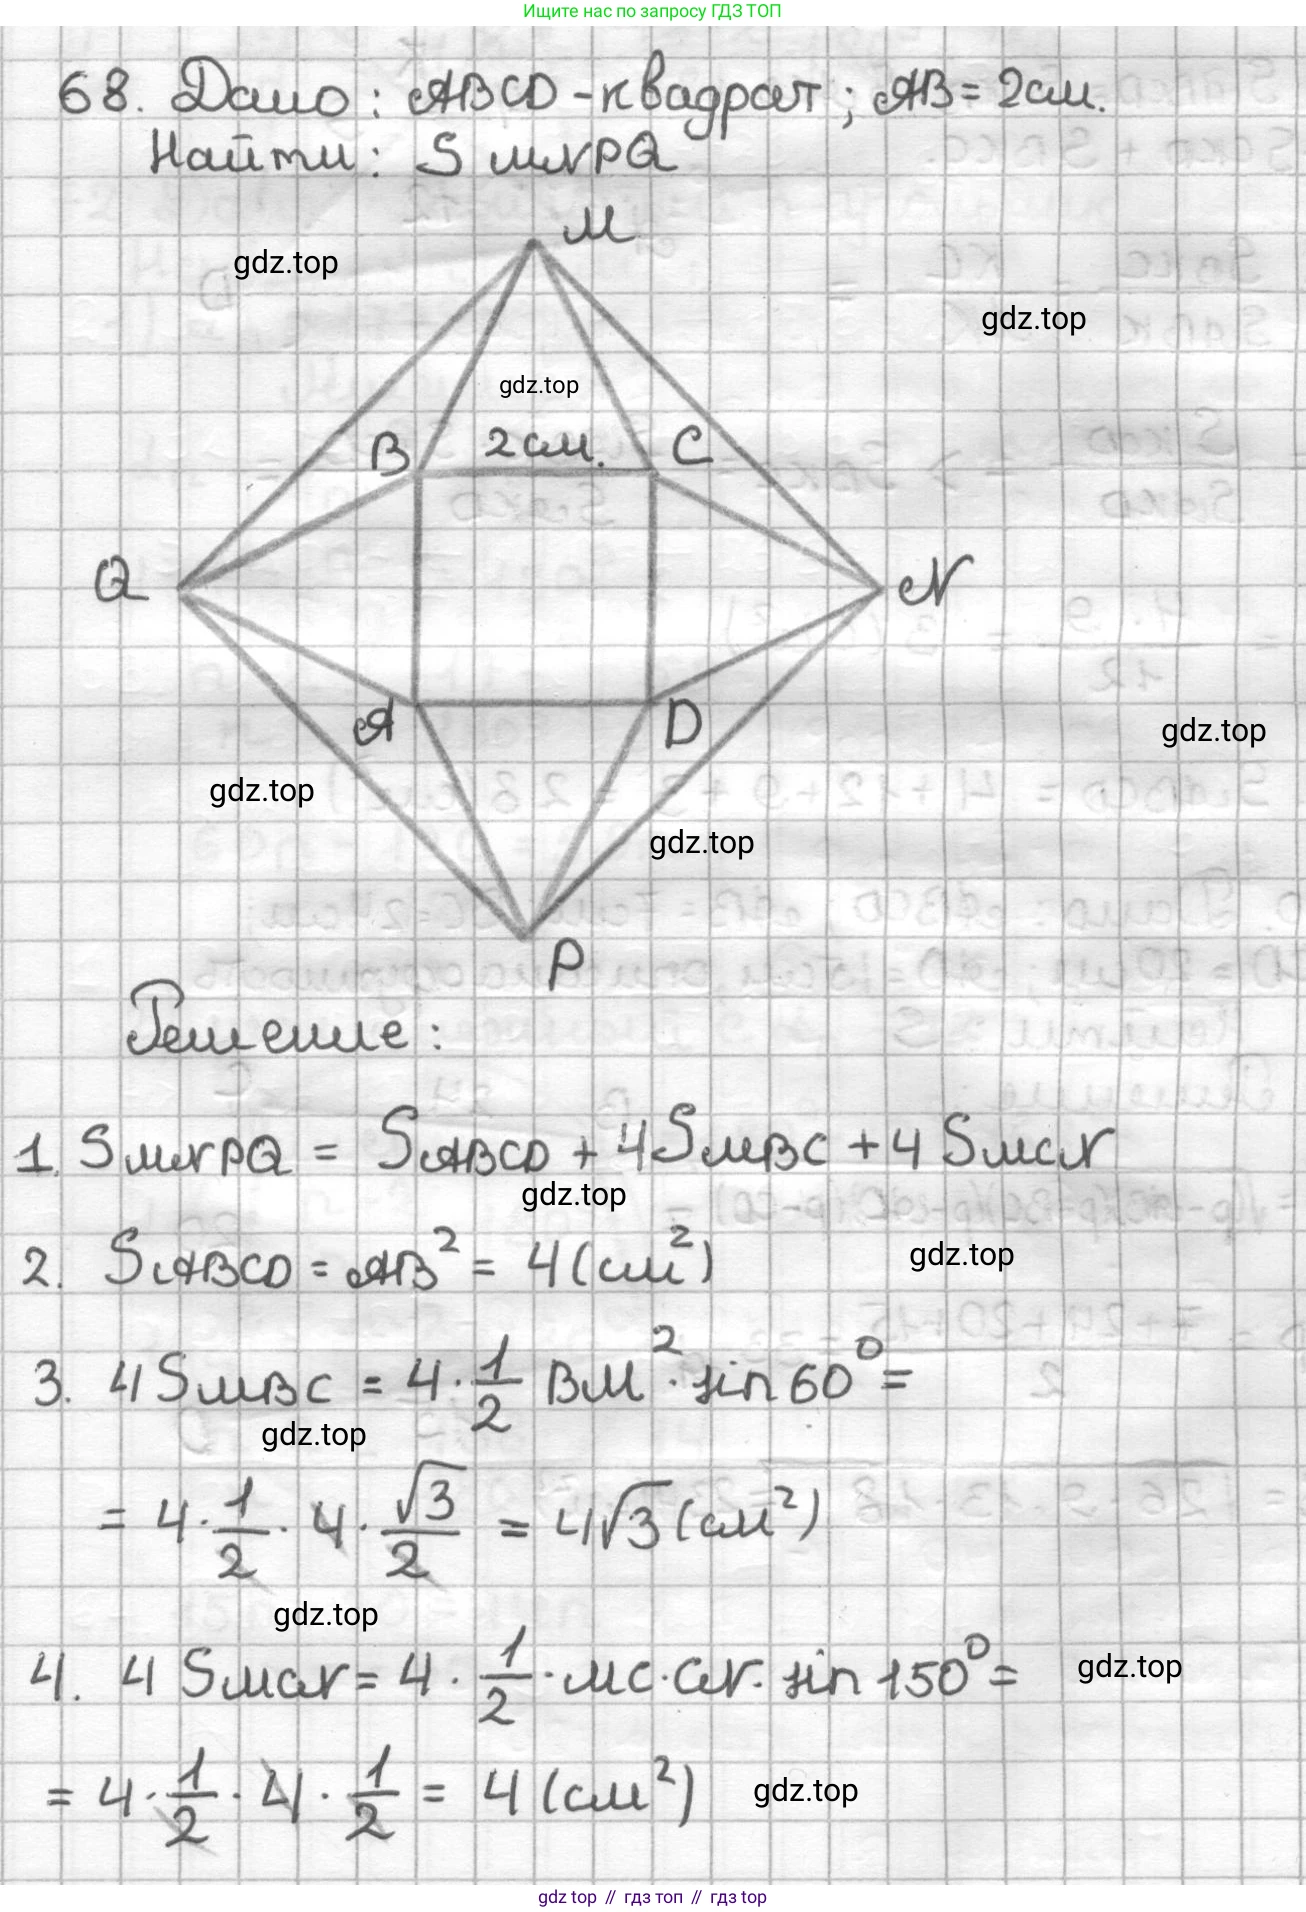 Ищите нас по запросу ГДЗ ТОП
68. Дано: ABCD - квадрат; AB = 2 см.
Найти: S MNPQ
M
gdz.top
gdz.top
gdz.top
B 2 см. C
Q N
A D
gdz.top
gdz.top
gdz.top
P
Решение:
1. S MNPQ = S ABCD + 4 S MBC + 4 S MCN
gdz.top
2. S ABCD = AB² = 4 (см²)
gdz.top
3. 4 S MBC = 4 · 1/2 BM² · sin 60° =
gdz.top
= 4 · 1/2 · 4 · √3/2 = 4√3 (см²)
gdz.top
4. 4 S MCN = 4 · 1/2 · MC · CN · sin 150° =
gdz.top
= 4 · 1/2 · 4 · 1/2 = 4 (см²)
gdz.top
gdz top // гдз топ // гдз top